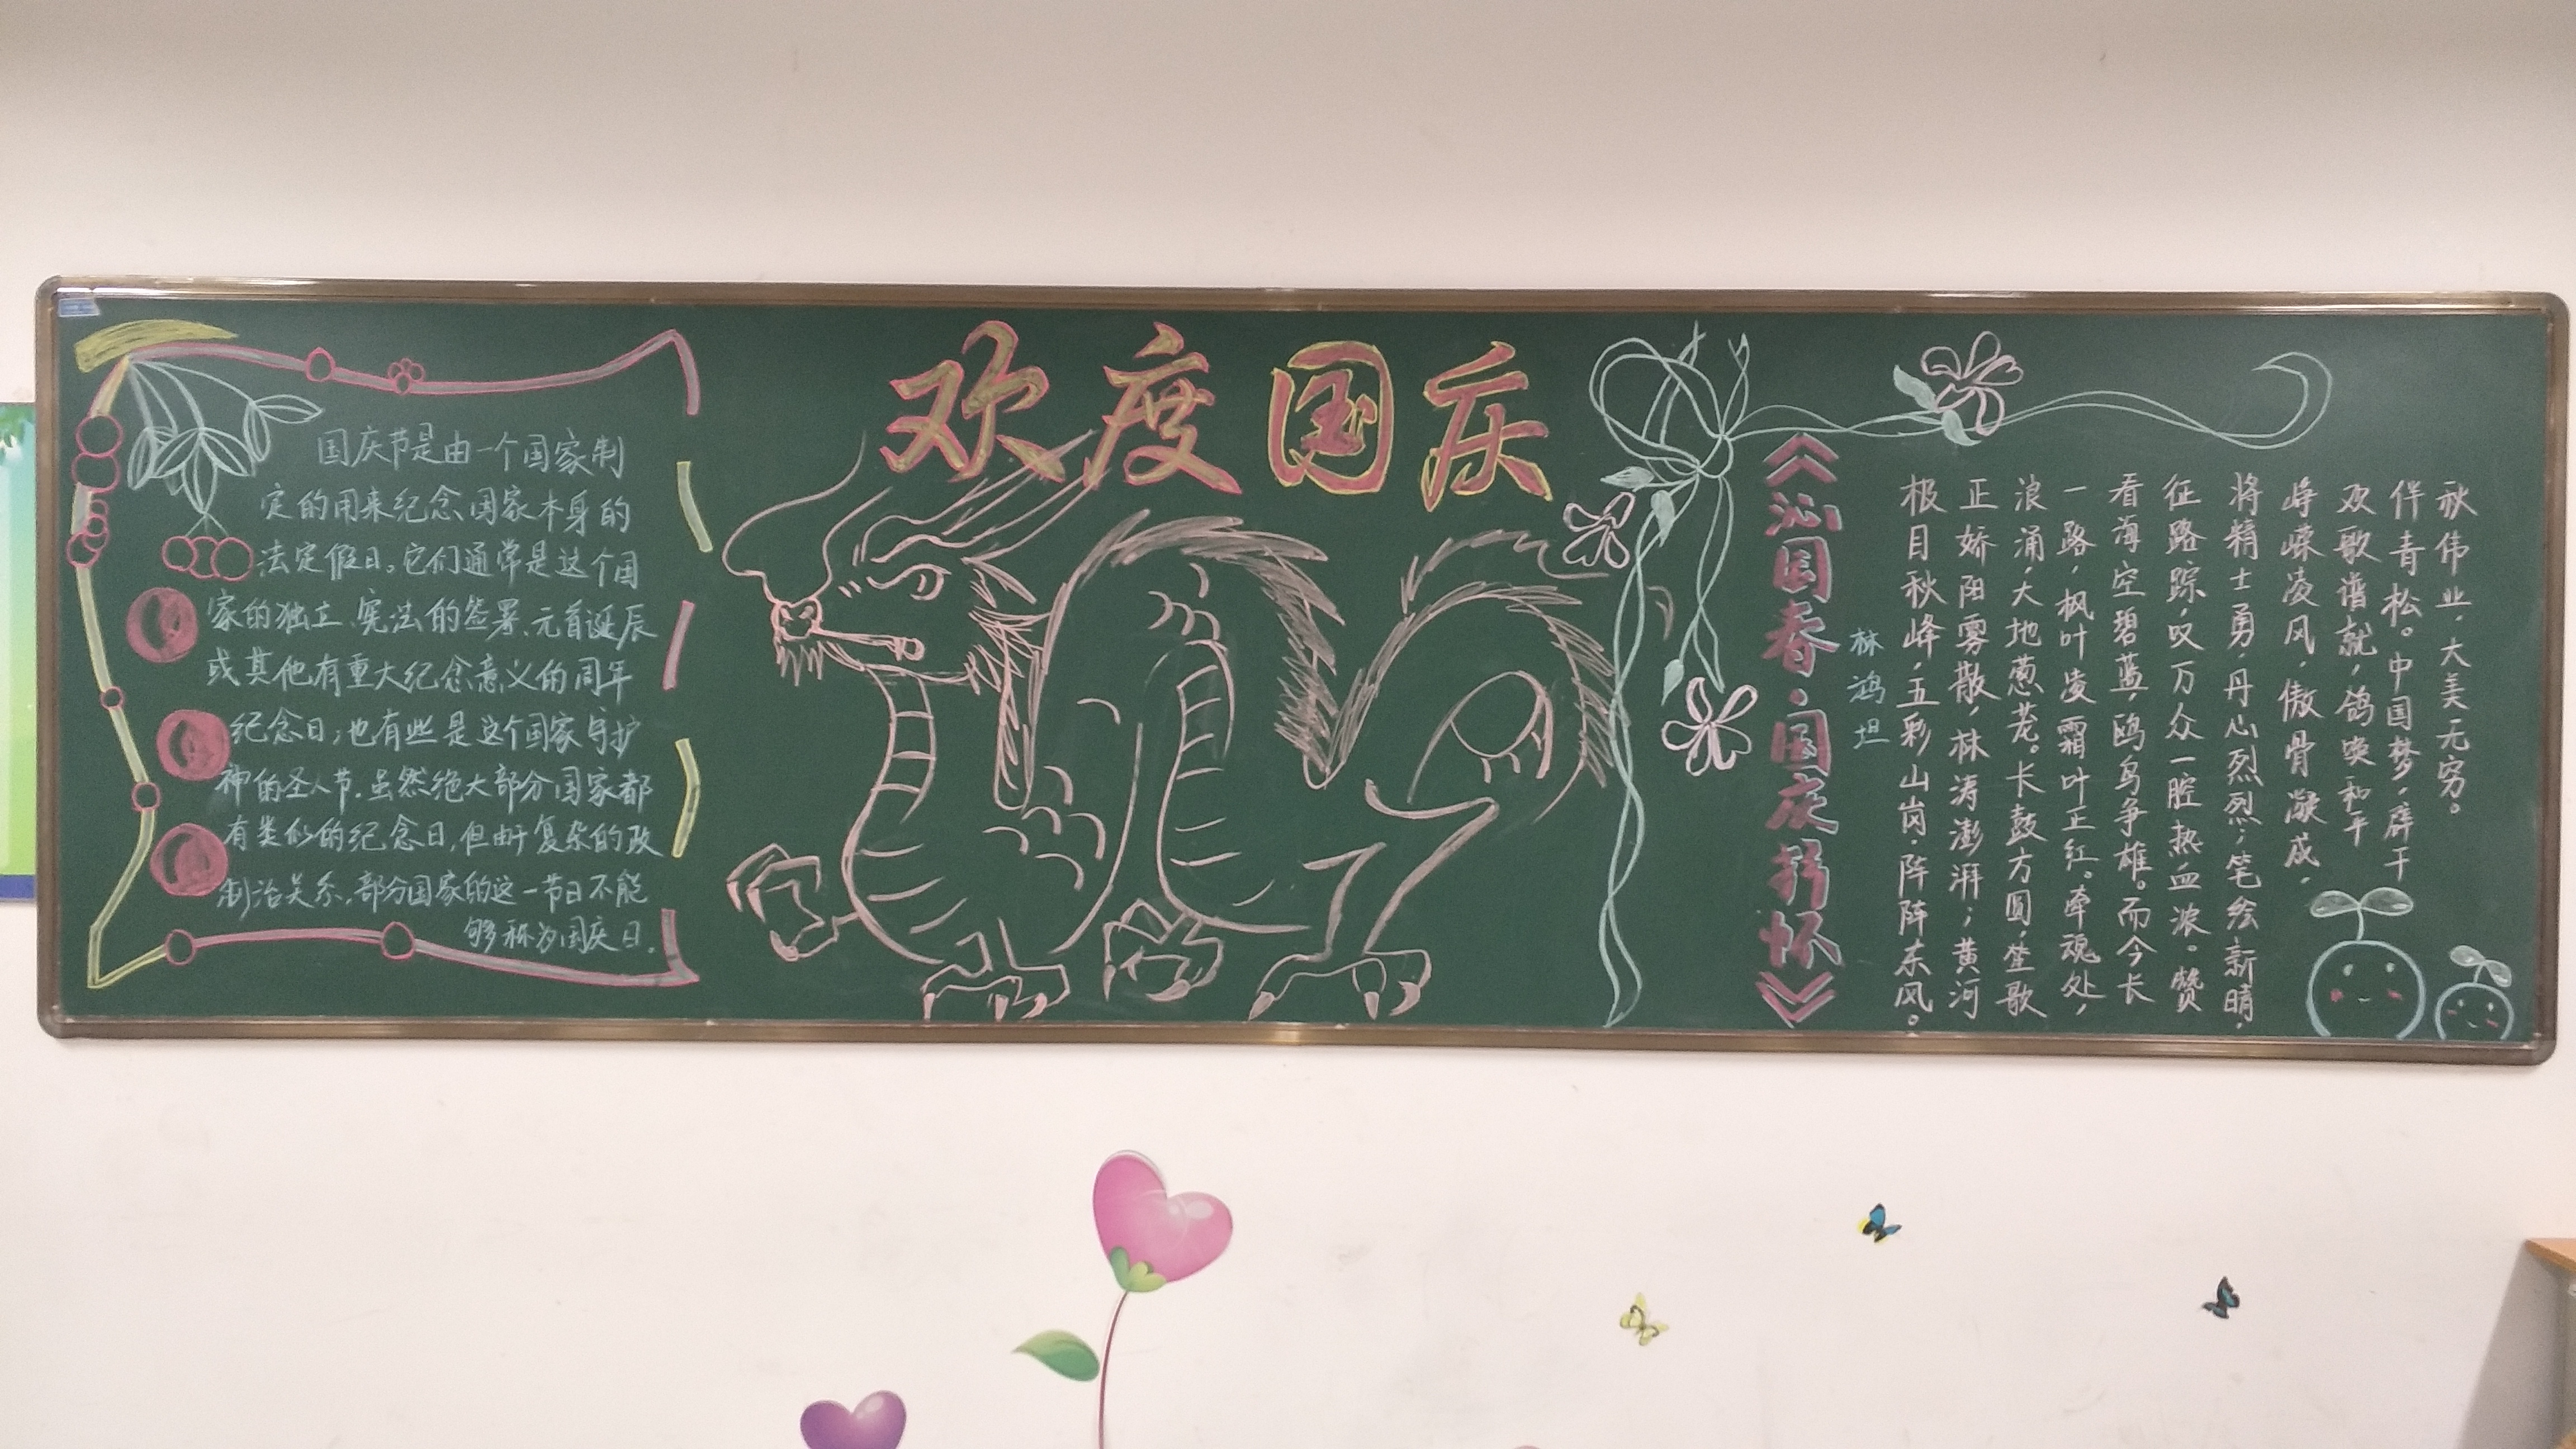 欢度国庆
国庆节是由一个国家制
定的用来纪念国家本身的
法定假日。它们通常是这个国
家的独立、宪法的签署、元首诞辰
或其他有重大纪念意义的周年
纪念日;也有些是这个国家守护
神的圣人节。虽然绝大部分国家都
有类似的纪念日,但由于复杂的政
制治关系,部分国家的这一节日不能
够称为国庆日。
《沁园春·国庆抒怀》
林鸿坦
极目秋峰,五彩山岗,阵阵东风。
正娇阳雾散,林涛澎湃;黄河
浪涌,大地葱茏。长鼓方圆,笙歌
一路,枫叶凌霜叶正红。牵魂处,
看海空碧蓝,鸥鸟争雄。而今长
征路踪,叹万众一腔热血浓。赞
将精士勇,丹心烈烈;笔绘新晴,
峥嵘凌风,傲骨凝成,
欢歌谱就,鸽唤和平
伴青松。中国梦,辟千
秋伟业,大美无穷。